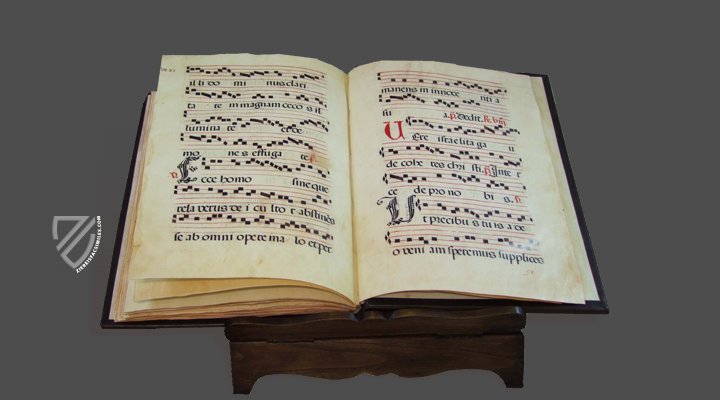 il li do mi nus clari
ta te m magnam ceco s il
lumina te et de
mo nes effuga te
Ecce homo sine que
rela verus de i cu lto r abstinēs
se ab omni opere ma lo et per
manens in innoce nti a
su a. p. s. dedit. R. viii
Vere israelita ga u
de cole res chri sti. p. Inte r
ce de pro no bi s. s.
Ut preci bus tu is a de
o veni am speremus supplices
ZIEREISFACSIMILES.COM